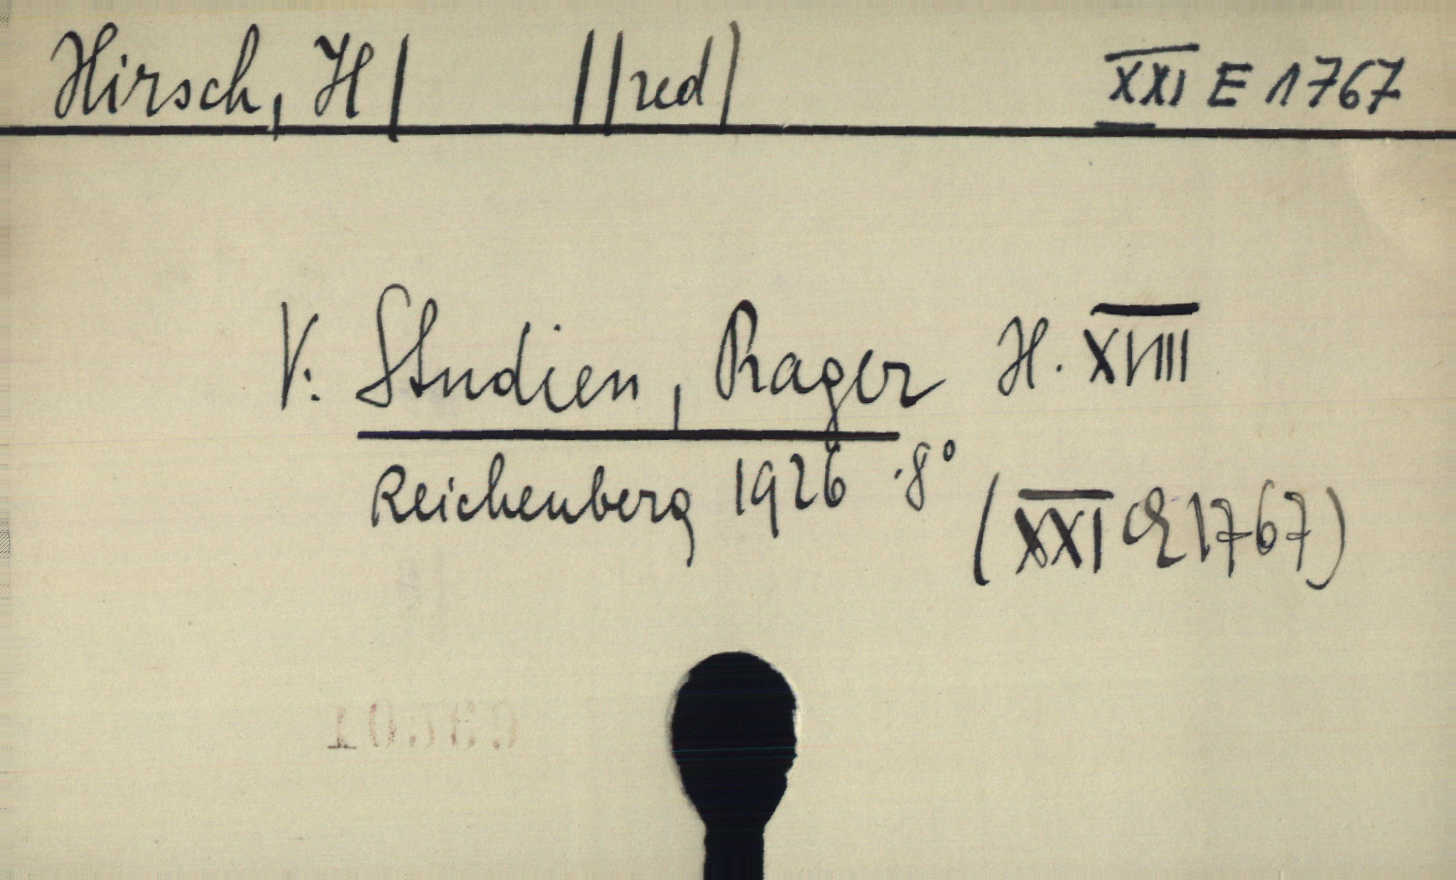 Hirsch, H| ||red| XXI E 1767
V. Studien, Prager H. XVIII
Reichenberg 1926 .8°
(XXI E 1767)